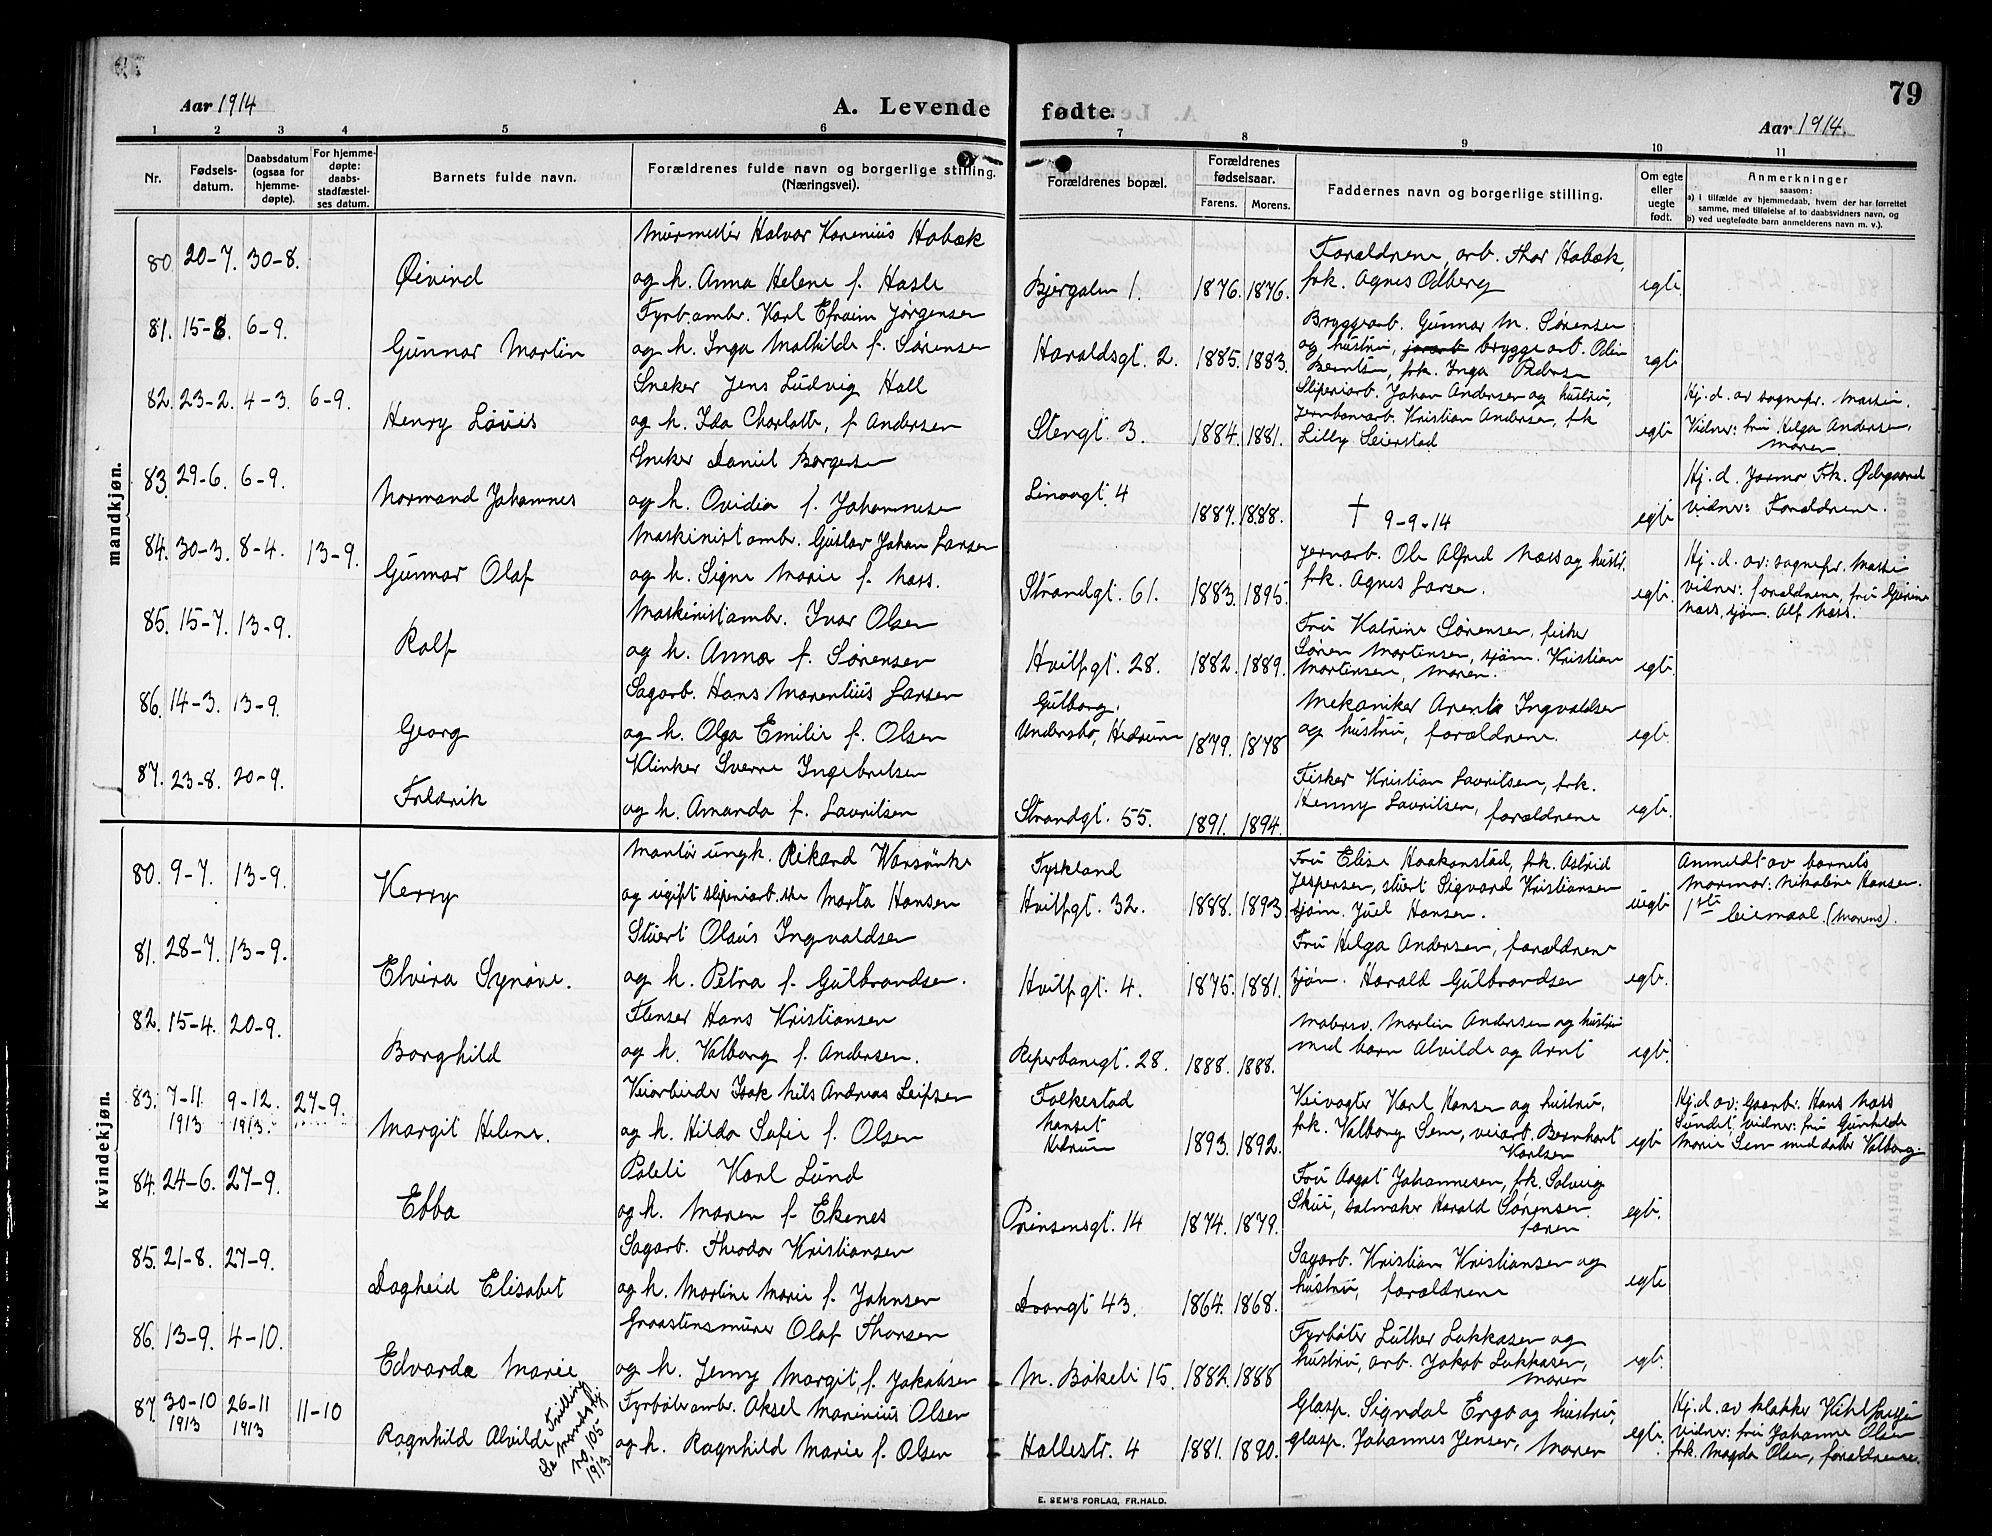 79
Aar 1914
A. Levende
fødte.
Aar 1914.
1 2 3 4 5 6 7 8 9 10 11
Nr.
Fødsels-
datum.
Daabsdatum
(ogsaa for
hjemme-
døpte).
For hjemme-
døpte:
daabs-
stadfæstel-
ses datum.
Barnets fulde navn.
Forældrenes fulde navn og borgerlige stilling.
(Næringsvei).
Forældrenes bopæl.
Forældrenes
fødselsaar.
Farens. Morens.
Faddernes navn og borgerlige stilling.
Om egte
eller
uegte
født.
Anmerkninger
saasom:
a) I tilfælde av hjemmedaab, hvem der har forrettet
samme, med tilføielse af to daabsvidners navn, og
b) ved uegtefødte barn anmelderens navn m. v.).
mandkjøn.
80 20-7. 30-8.
Øivind
Murmester Halvor Karenius Habæk
og h. Anna Helene f. Hasle
Bjergalen 1.
1876. 1876.
Forældrene, arb. Thor Habæk,
frk. Agnes Odberg
egte
81. 15-8 6-9.
Gunnar Martin
Fyrb.ambr. Karl Efraim Jørgensen
og h. Inga Mathilde f. Sørensen
Haraldsgt. 2.
1885. 1883.
Bryggearb. Gunnar M. Sørensen
og hustru, bryggearb. Odin
Berntsen, frk. Inga Pedersen
egte
82. 23-2. 4-3. 6-9.
Henry Louis
Sneker Jens Ludvig Hall
og h. Ida Charlotte, f. Andersen
Stengt. 3.
1884. 1881.
Sliperiarb. Johan Andersen og hustru,
jernbanearb. Kristian Andersen, frk
Lilly Seierstad
egte
Hj. d. av sognepr. Massie.
Vidner: fru Helga Andersen,
moren.
83. 29-6. 6-9.
Normand Johannes
Sneker Daniel Borgersen
og h. Ovidia f. Johannesen
Linaagt 4
1887. 1888.
† 9-9-14
egte
Hj. d. Jormor Frk. Ødegaard
vidner: Forældrene.
84. 30-3. 8-4. 13-9.
Gunnar Olaf
Maskinistambr. Gustav Johan Larsen
og h. Signe Marie f. Næss.
Strandgt. 61.
1883. 1895.
Jernarb. Ole Alfred Næss og hustr.
frk. Agnes Larsen.
egte.
Hj. d. av: sognepr. Massie
vidner: forældrene, fru Gurine
Næss, sjøm. Alf Næss.
85. 15-7. 13-9.
Rolf
Maskinistambr. Ivar Olsen
og h. Anna f. Sørensen
Hvitfgt. 28.
1882. 1889.
Fru Katrine Sørensen, fisker
Søren Mortensen, sjøm. Kristian
Mortensen, Moren.
egte.
86. 14-3. 13-9.
Georg
Sagarb. Hans Marentius Larsen
og h. Olga Emilie f. Olsen
Gulborg.
Undersbo, Hedrum
1879. 1878
Mekaniker Arent Ingvaldsen
og hustru, forældrene.
egte.
87. 23-8. 20-9.
Fredrik
Klinker Sverre Ingebretsen
og h. Amanda f. Lauritsen
Strandgt. 55.
1891. 1894.
Fisker Kristian Lauritsen, frk.
Henny Lauritsen, forældrene
egte.
kvindekjøn.
80. 9-7. 13-9.
Kerry
Montør ungk. Rikard Warsönke
og ugift sliperiarb.ske Marta Hansen
Tyskland
Hvitfgt. 32.
1888. 1893
Fru Elise Haakenstad, frk. Astrid
Jespersen, stuert Sigvard Kristiansen
sjøm. Juel Hansen.
uegte
Anmeldt av barnets
mormor: Nikoline Hansen.
1ste leiermaal. (Morens).
81. 28-7. 13-9.
Elvira Synøve.
Stuert Olaus Ingvaldsen
og h. Petra f. Gulbrandsen.
Hvitfgt. 4.
1875. 1881.
Fru Helga Andersen, forældrene
sjøm. Harald Gulbrandsen
egte.
82. 15-4. 20-9.
Borghild
Flenser Hans Kristiansen
og h. Valborg f. Andersen.
Reperbanegt. 28.
1888. 1888.
Martin Andersen og hustru
med barn Alvilde og Arnt
egte.
83. 7-11 9-12. 27-9.
1913 1913.
Margit Helene.
Veiarbeider Isak Nils Andreas Leifsen
og h. Hilda Sofie f. Olsen
Folkestad
Nanset
Hedrum
1893. 1892.
Veivogter Karl Hansen og hustru,
frk. Valborg Sem, veiarb. Bernhart
Karlsen
egte
Hj.d av: Gaarbr. Hans Næss
Sundet, vidner: fru Gunhilde
Marie Sem med datter Valborg.
84. 24-6. 27-9.
Ebba
Politi Karl Lund
og h. Maren f. Ekenes
Prinsensgt. 14
1874. 1879.
Fru Aagot Johannesen, frk. Solveig
Skui, salmaker Harald Sørensen.
faren
egte.
85. 21-8. 27-9.
Dagheid Elisabet
Sagarb. Theodor Kristiansen
og h. Martine Marie f. Johnsen
Dronngt 43.
1864. 1868.
Sagarb. Kristian Kristiansen og
hustru, forældrene
egte
86. 13-9. 4-10.
Edvarda Marie
Graastensmurer Olaf Thorsen
og h. Jenny Margit, f. Jakobsen
M. Bøkeli 15.
1882. 1888
Fyrbøter Luther Lukkasen og
hustru, arb. Jakob Lukkasen,
Moren
egte.
87. 30-10 26-11 11-10
1913 1913
Ragnhild Alvilde
Tvilling
Se Mandskj
no 105
1913.
Fyrbøterambr. Aksel Marinius Olsen
og h. Ragnhild Marie f. Olsen
Hallestr. 4
1881. 1890.
Glasp. Signdal Ergo og hustru,
glasp. Johannes Jensen, Moren
egte.
Hj. d. av klokker Kihl
vidner: fru Johanne Olsen
frk. Magda Olsen, forældrene.
E. SEM'S FORLAG, FR.HALD.